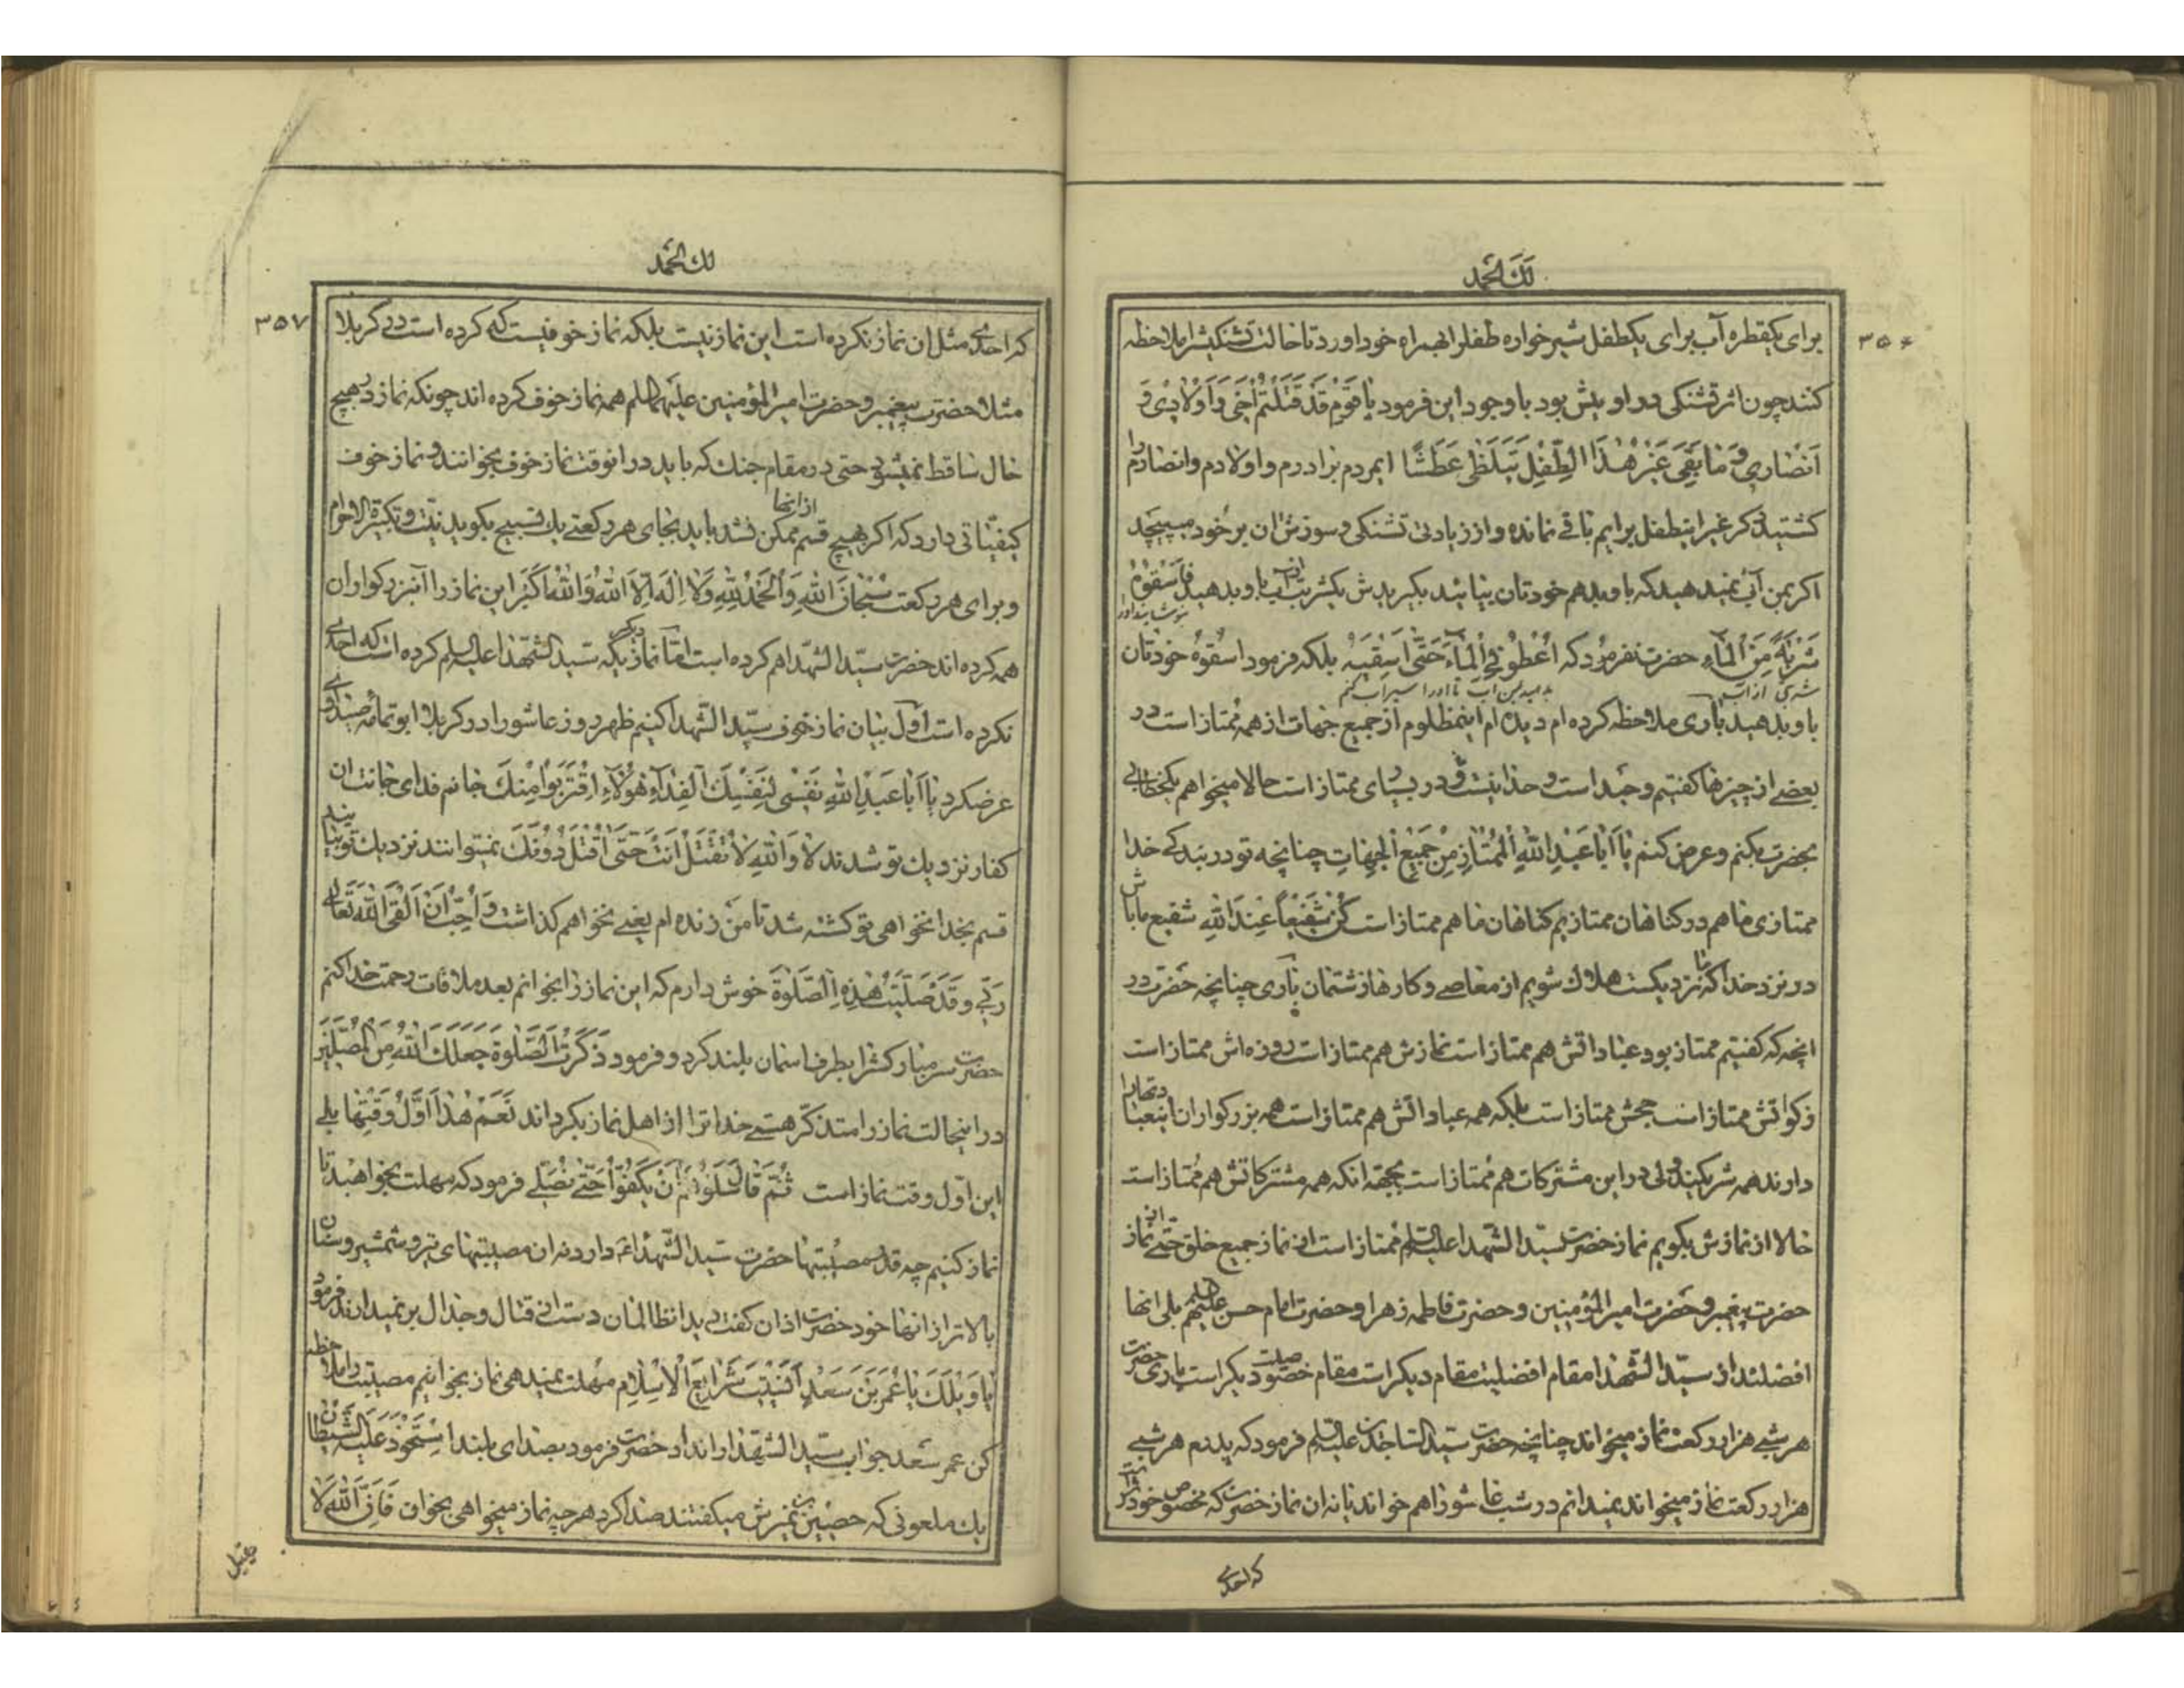 لك الحمد
۳۵۶
برای یکقطره آب برای یکطفل شیر خواره طفلرا همراه خود اورد تا حالت تشنگیشرا ملاحظه
کنند چون اثر تشنکی در او بیش بود با وجود این فرمود یا قَوْمِ قَدْ قَتَلْتُمْ اَخی وَ اَوْلادی وَ
اَنْصاری وَ ما بَقِیَ غَیْرُ هٰذَا الطِّفْلِ یَتَلَظّٰی عَطَشًا ایمردم برادرم و اولادم و انصارم را
کشتید دیکر غیر اینطفل برایم باقی نمانده و از زیادتی تشنکی و سوزش ان بر خود میپیچد
اکر بمن آب نمیدهید که باو بدهم خودتان بیائید بکیریدش یکشربت از آب باو بدهید فَاسْقُوهُ
بنوشانید او را
شَرْبَةً مِنَ الْماءِ حضرت نفرمود که اَعْطُونِی الْماءَ حَتّٰی اَسْقِیَهُ بلکه فرمود اسْقُوهُ خودتان
شربتی از آب بدهید بمن آب تا او را سیراب کنم
باو بدهید باری ملاحظه کرده ام دیده ام اینمظلوم از جمیع جهات از همه ممتاز است در
بعضی از چیزها کفتیم وجد است و حد نیست و در بسیای ممتاز است حالا میخواهم یکخطابی
بحضرت بکنم و عرض کنم یا اَبا عَبْدِ اللّٰهِ الْمُمْتازِ مِنْ جَمیعِ الْجِهاتِ چنانچه تو در بندکی خدا
ممتازی ما هم در کناهان ممتازیم کناهان ما هم ممتاز است کُنْ شَفیعاً عِنْدَ اللّٰهِ شفیع ما باش
در نزد خدا که نزدیکست هلاک شویم از معاصی و کارهای زشتمان باری چنانچه حضرت در
انچه که کفتیم ممتاز بود عباداتش هم ممتاز است نمازش هم ممتاز است روزه اش ممتاز است
زکواتش ممتاز است حجش ممتاز است بلکه همه عباداتش هم ممتاز است همه بزرکواران اینعبادتهارا
دارند همه شریکند ولی در این مشترکات هم ممتاز است بجهة انکه همه مشترکاتش هم ممتاز است
حالا از نمازش بکویم نماز حضرت سید الشهدا علیه السلم ممتاز است از نماز جمیع خلق حتی از نماز
حضرت پیغمبر و حضرت امیر المؤمنین و حضرت فاطمه زهرا و حضرت امام حسن علیهم السلم بلی انها
افضلند از سید الشهدا مقام افضلیت مقام دیکر است مقام خصوصیت دیکر است باری حضرت
هر شبی هزار رکعت نماز میخواند چنانچه حضرت سید الساجدین علیه السلم فرمود که پدرم هر شبی
هزار رکعت نماز میخواند نمیدانم در شب عاشورا هم خواند یا نه ان نماز حضرت که مخصوص خودش است
که احدی
لك الحمد
۳۵۷
که احدی مثل ان نماز نکرده است این نماز نیست بلکه نماز خوفیست که کرده است در کربلا
مثلا حضرت پیغمبر و حضرت امیر المؤمنین علیهما السلم همه نماز خوف کرده اند چونکه نماز در هیچ
حال ساقط نمیشود حتی در مقام جنک که باید در انوقت نماز خوف بخوانند و نماز خوف
کیفیاتی دارد که اکر هیچ قسم از انها ممکن نشد باید بجای هر رکعتی یک تسبیح بکوید نیت و تکبیرة الاحرام
و برای هر رکعت سُبْحانَ اللّٰهِ وَ الْحَمْدُ لِلّٰهِ وَ لا اِلٰهَ اِلَّا اللّٰهُ وَ اللّٰهُ اَکْبَرُ این نماز را آنبزرکواران
همه کرده اند حضرت سید الشهدا هم کرده است امّا نماز دیکر یکه سید الشهدا علیه السلم کرده است که احدی
نکرده است اوّل بیان نماز خوف سید الشهدا کنیم ظهر روز عاشورا در کربلا ابو ثمامه صیداوی
عرضکرد یا اَبا عَبْدِ اللّٰهِ نَفْسی لِنَفْسِکَ الْفِداءُ هٰؤُلاءِ اقْتَرَبُوا مِنْکَ جانم فدای جانت ان
کفار نزدیک تو شدند لا وَ اللّٰهِ لا تُقْتَلُ اَنْتَ حَتّٰی اُقْتَلَ دُونَکَ نمیتوانند نزدیک تو بیایند
قسم بخدا نخواهی تو کشته شد تا من زنده ام یعنی نخواهم کذاشت وَ اُحِبُّ اَنْ اَلْقَی اللّٰهَ تَعالٰی
رَبّی وَ قَدْ صَلَّیْتُ هٰذِهِ الصَّلٰوةَ خوش دارم که این نماز را بخوانم بعد ملاقات رحمت خدا کنم
حضرت سر مبارکشرا بطرف اسمان بلند کرد و فرمود ذَکَرْتَ الصَّلٰوةَ جَعَلَکَ اللّٰهُ مِنَ الْمُصَلّینَ
در اینحالت نماز را متذکّر هستی خدا ترا از اهل نماز بکرداند نَعَمْ هٰذا اَوَّلُ وَقْتِها بلی
این اول وقت نماز است ثُمَّ قالَ سَلُوهُمْ اَنْ یَکُفُّوا حَتّٰی نُصَلّی فرمود که مهلت بخواهید تا
نماز کنیم چه قدر مصیبتها حضرت سید الشهداء دارد نه ان مصیبتهای تیر و شمشیر و سنان
بالاتر از انها خود حضرت اذان کفت دید انظالمان دست از قتال و جدال بر نمیدارند فرمود
یا وَیْلَکَ یا عُمَرَ بْنَ سَعْدٍ اَنَسیتَ شَرایِعَ الْاِسْلامِ مهلت نمیدهی نماز بخوانیم مصیبت را ملاحظه
کن عمر سعد جواب سید الشهدا را نداد حضرت فرمود بصدای بلند اسْتَحْوَذَ عَلَیْهِ الشَّیْطانُ
یک ملعونی که حصین نمیرش میکفتند صدا کرد هر چه نماز میخواهی بخوان فَاِنَّ اللّٰهَ لا
یقبل